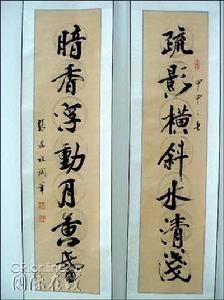 疏影橫斜水清淺
甲申
暗香浮動月黃昏
国际在线